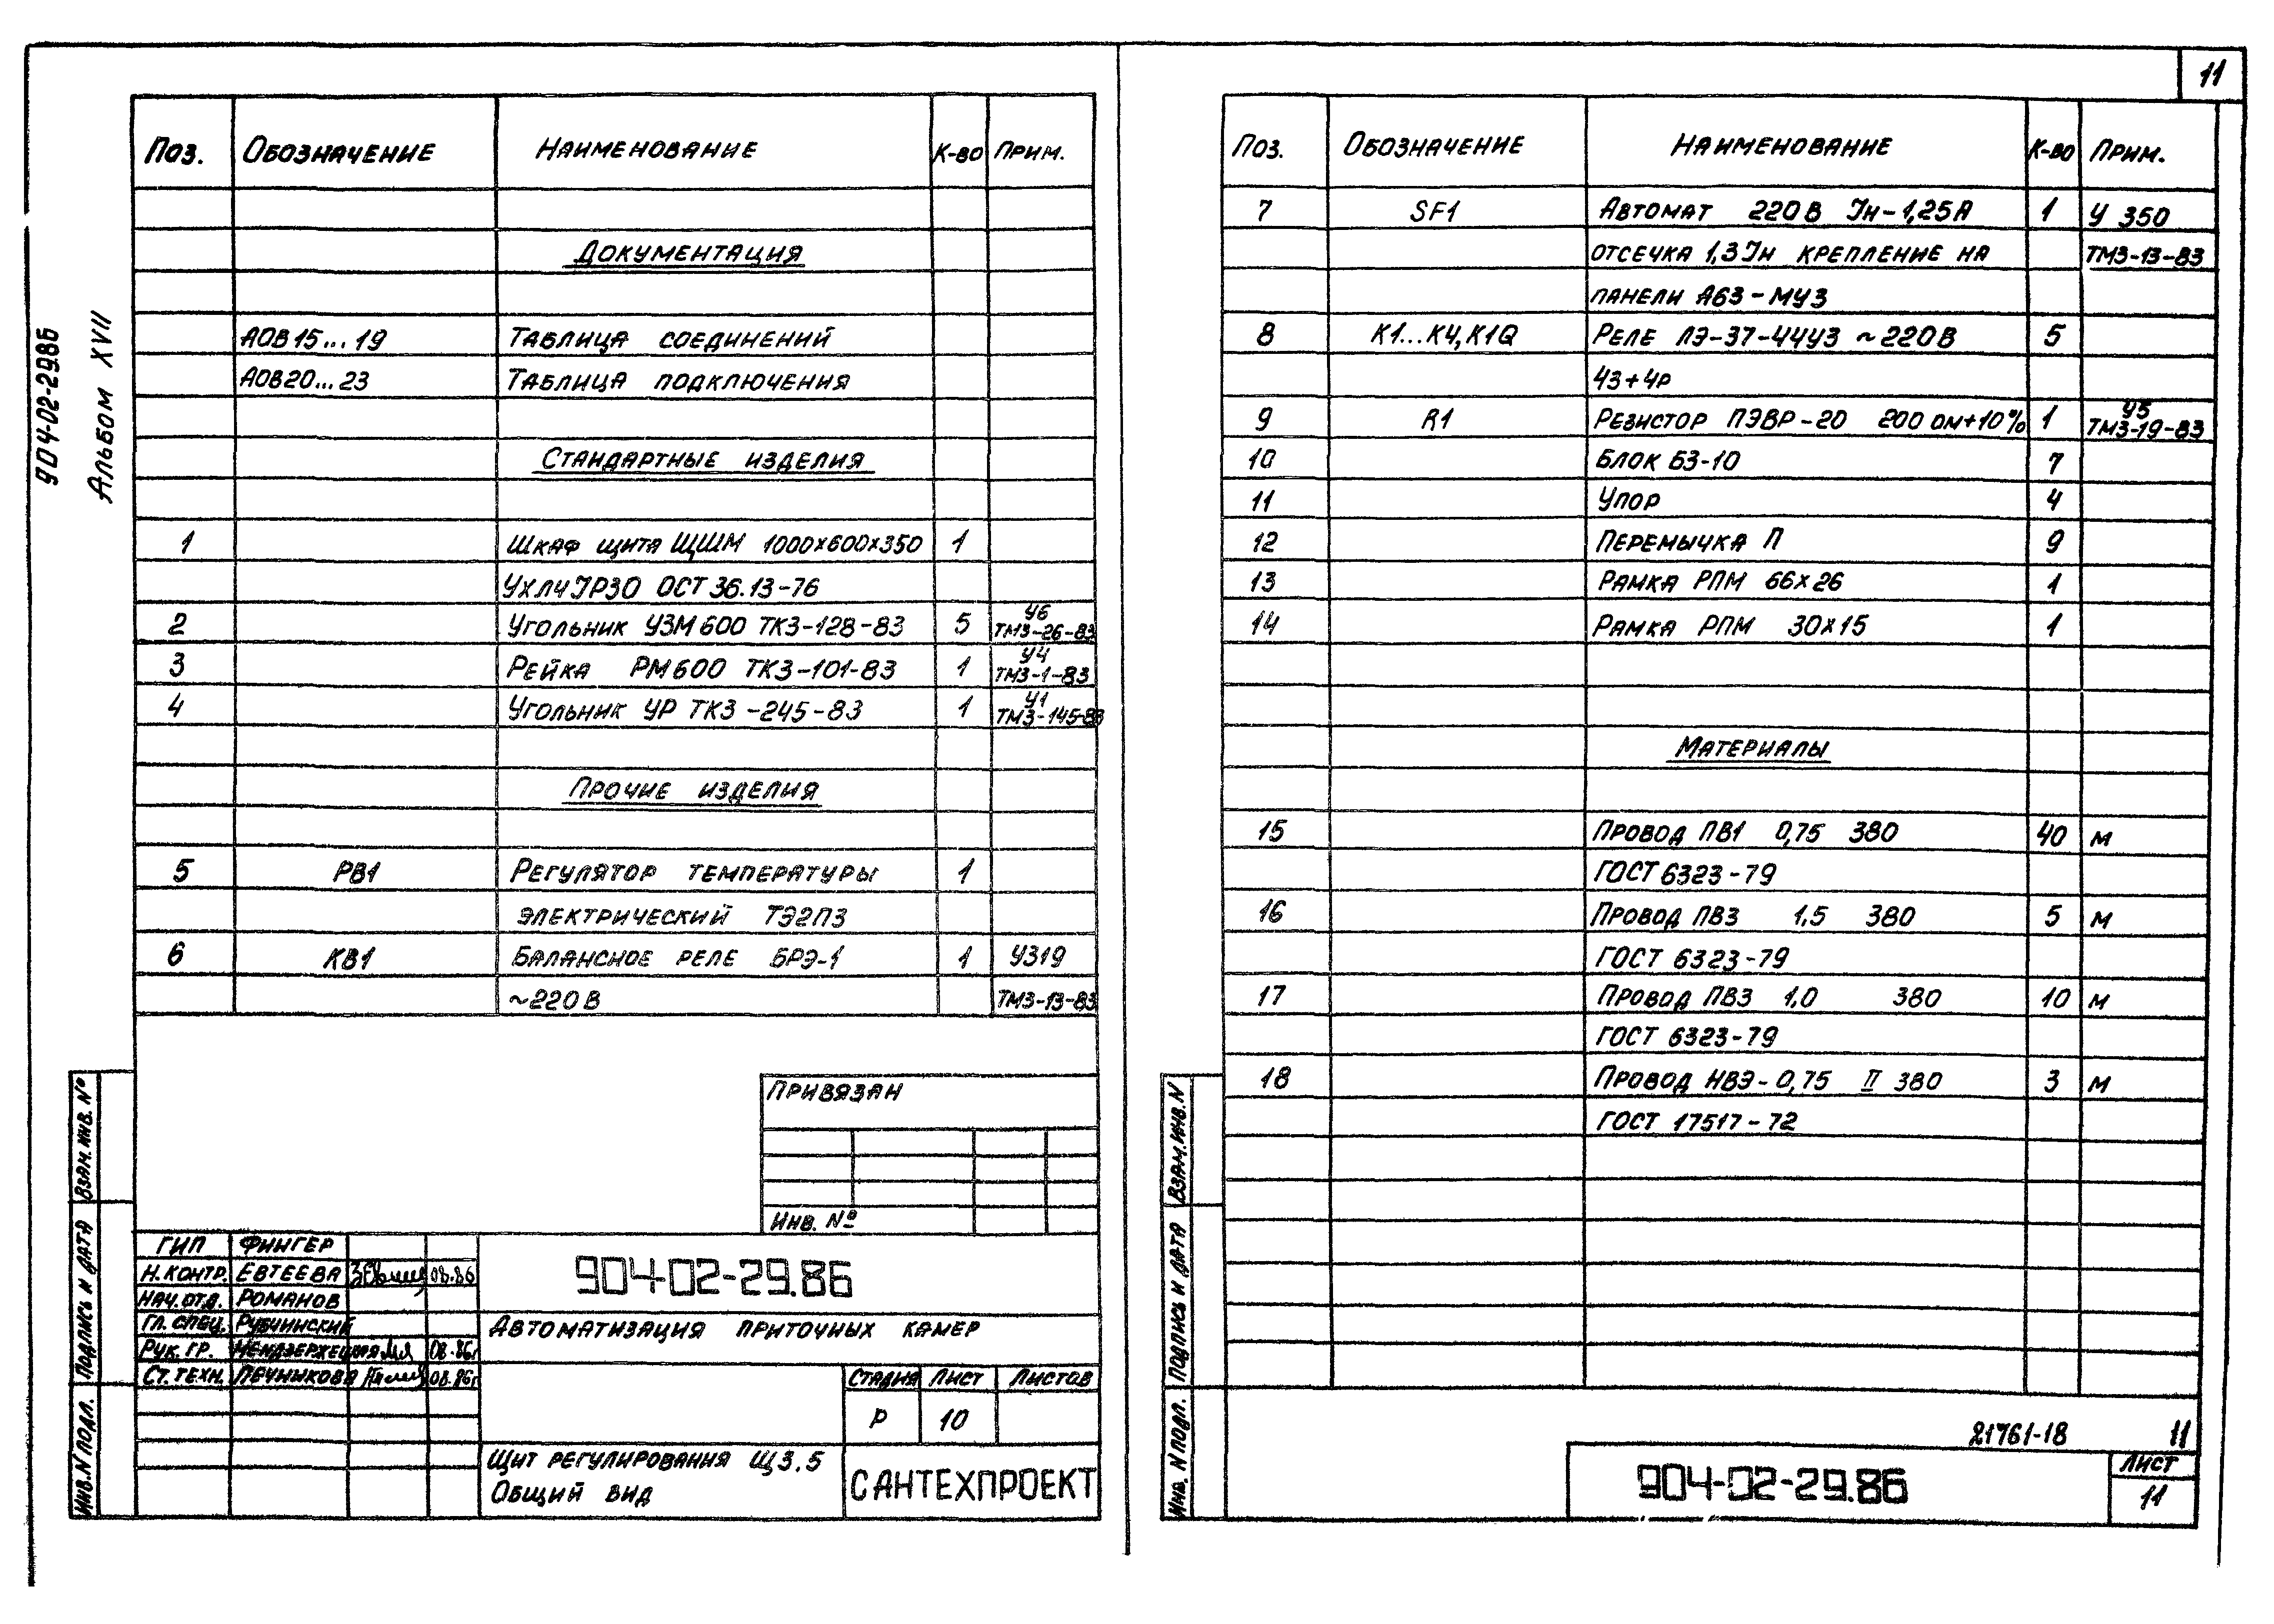 11
904-02-29.86
Альбом XVII
Поз. Обозначение Наименование К-во Прим.
Документация
АОВ15...19 Таблица соединений
АОВ20...23 Таблица подключения
Стандартные изделия
1 Шкаф щита ЩШМ 1000х600х350 1
УХЛ4 JР30 ОСТ 36.13-76
2 Угольник УЗМ600 ТК3-128-83 5 У6 ТМ3-26-83
3 Рейка РМ600 ТК3-101-83 1 У4 ТМ3-1-83
4 Угольник УР ТК3-245-83 1 У1 ТМ3-145-83
Прочие изделия
5 РВ1 Регулятор температуры 1
электрический ТЭ2П3
6 КВ1 Балансное реле БРЭ-1 1 У319
~220В ТМ3-13-83
Привязан
Инв. №
ГИП Фингер
Н. контр. Евтеева 08.86
Нач. отд. Романов
Гл. спец. Рубчинский
Рук. гр. 08.86г
Ст. техн. Печникова 08.86г
904-02-29.86
Автоматизация приточных камер
Стадия Лист Листов
Р 10
Щит регулирования Щ3.5
Общий вид
САНТЕХПРОЕКТ
Взам. инв. №
Подпись и дата
Инв. N подл.
Поз. Обозначение Наименование К-во Прим.
7 SF1 Автомат 220В Jн-1,25А 1 У 350
отсечка 1,3Jн крепление на ТМ3-13-83
панели А63-МУ3
8 К1...К4, К1Q Реле ПЭ-37-44У3 ~220В 5
4з+4р
9 R1 Резистор ПЭВР-20 200 ом+10% 1 У3 ТМ3-19-83
10 Блок БЗ-10 7
11 Упор 4
12 Перемычка П 9
13 Рамка РПМ 66х26 1
14 Рамка РПМ 30х15 1
Материалы
15 Провод ПВ1 0,75 380 40 м
ГОСТ 6323-79
16 Провод ПВ3 1,5 380 5 м
ГОСТ 6323-79
17 Провод ПВ3 1,0 380 10 м
ГОСТ 6323-79
18 Провод НВЭ-0,75 II 380 3 м
ГОСТ 17517-72
Взам. инв. N
Подпись и дата
Инв. N подл.
21761-18 11
904-02-29.86
Лист
11